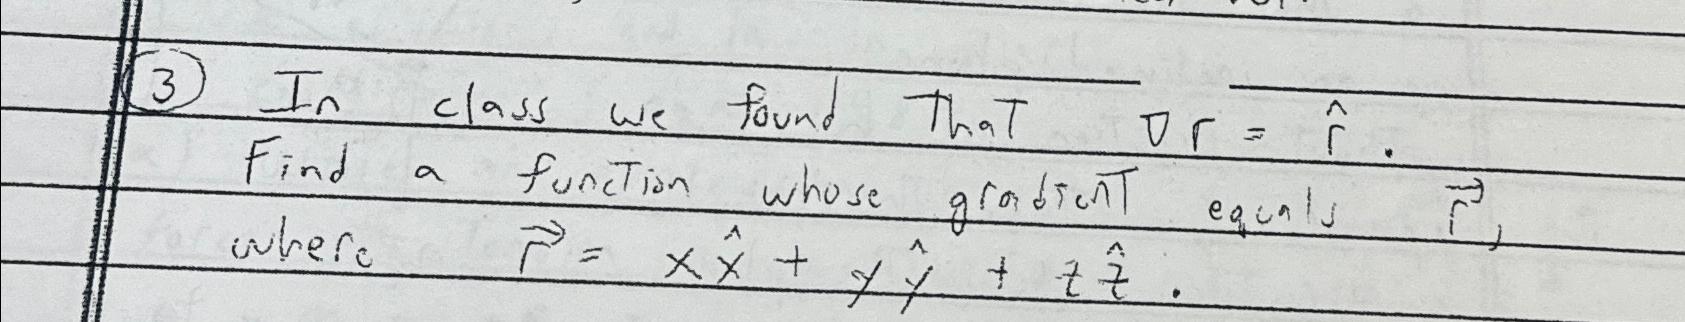 ③ In class we found That ∇r = r̂.
Find a function whose gradient equals r⃗,
where r⃗ = xx̂ + yŷ + zẑ.